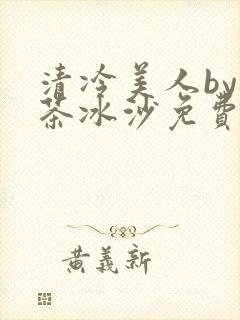 清冷美人by
茶冰沙免費
黄義新